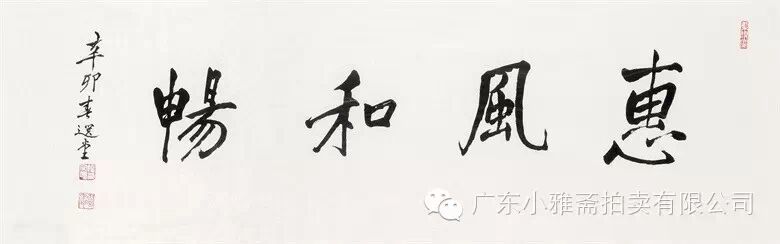 惠風和暢
辛卯春選堂
广东小雅斋拍卖有限公司